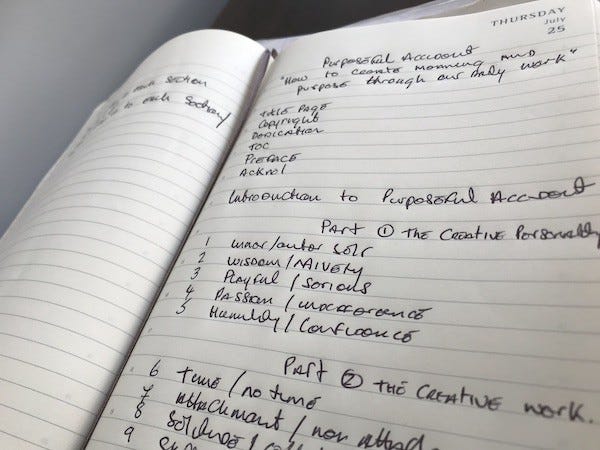 each section
to each section/
THURSDAY
July
25
Purposeful Account
"How to create meaning and
purpose through our daily work"
TITLE PAGE
Copyright
Dedication
TOC
Preface
Acknol
Introduction to Purposeful Account
Part ① THE Creative Personality
1 Inner/outer self
2 WISDOM/NAIVETY
3 Playful/Serious
4 PASSION/INDIFFERENCE
5 Humility/Confidence
Part ② THE Creative work.
6 Time/no time
7 attachment/non attach
8 Solitude/
9